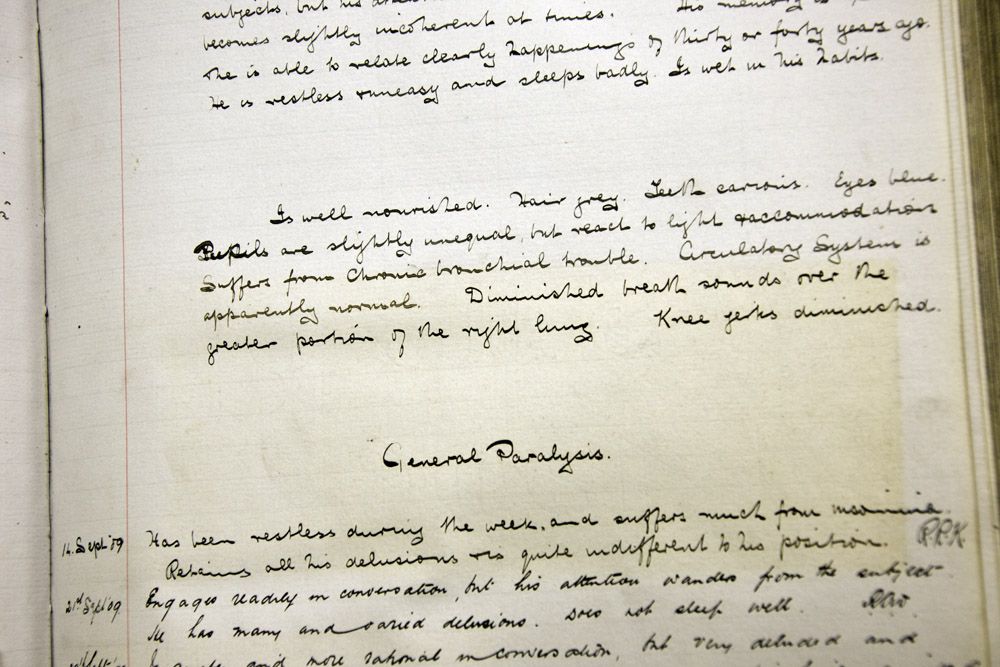 subjects, but his
becomes slightly incoherent at times. His memory
& he is able to relate clearly happenings of thirty or forty years ago.
He is restless & uneasy and sleeps badly. Is wet in his habits.
Is well nourished. Hair grey. Teeth carious. Eyes blue.
Pupils are slightly unequal, but react to light & accommodation
Suffers from Chronic bronchial trouble. Circulatory System is
apparently normal. Diminished breath sounds over the
greater portion of the right lung. Knee jerks diminished.
General Paralysis.
14. Sept '09 Has been restless during the week, and suffers much from insomnia.
Retains all his delusions & is quite indifferent to his position. R.P.K
21st Sept '09 Engages readily in conversation, but his attention wanders from the subject
He has many and varied delusions. Does not sleep well.
and more rational in conversation, but very deluded and